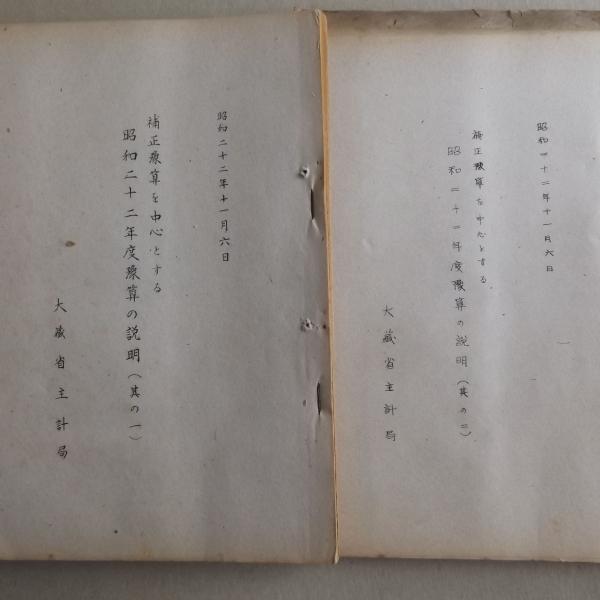 昭和二十二年十一月六日
補正豫算を中心とする
昭和二十二年度豫算の説明(其の一)
大藏省主計局
昭和二十二年十一月六日
補正豫算を中心とする
昭和二十二年度豫算の説明(其の二)
大藏省主計局